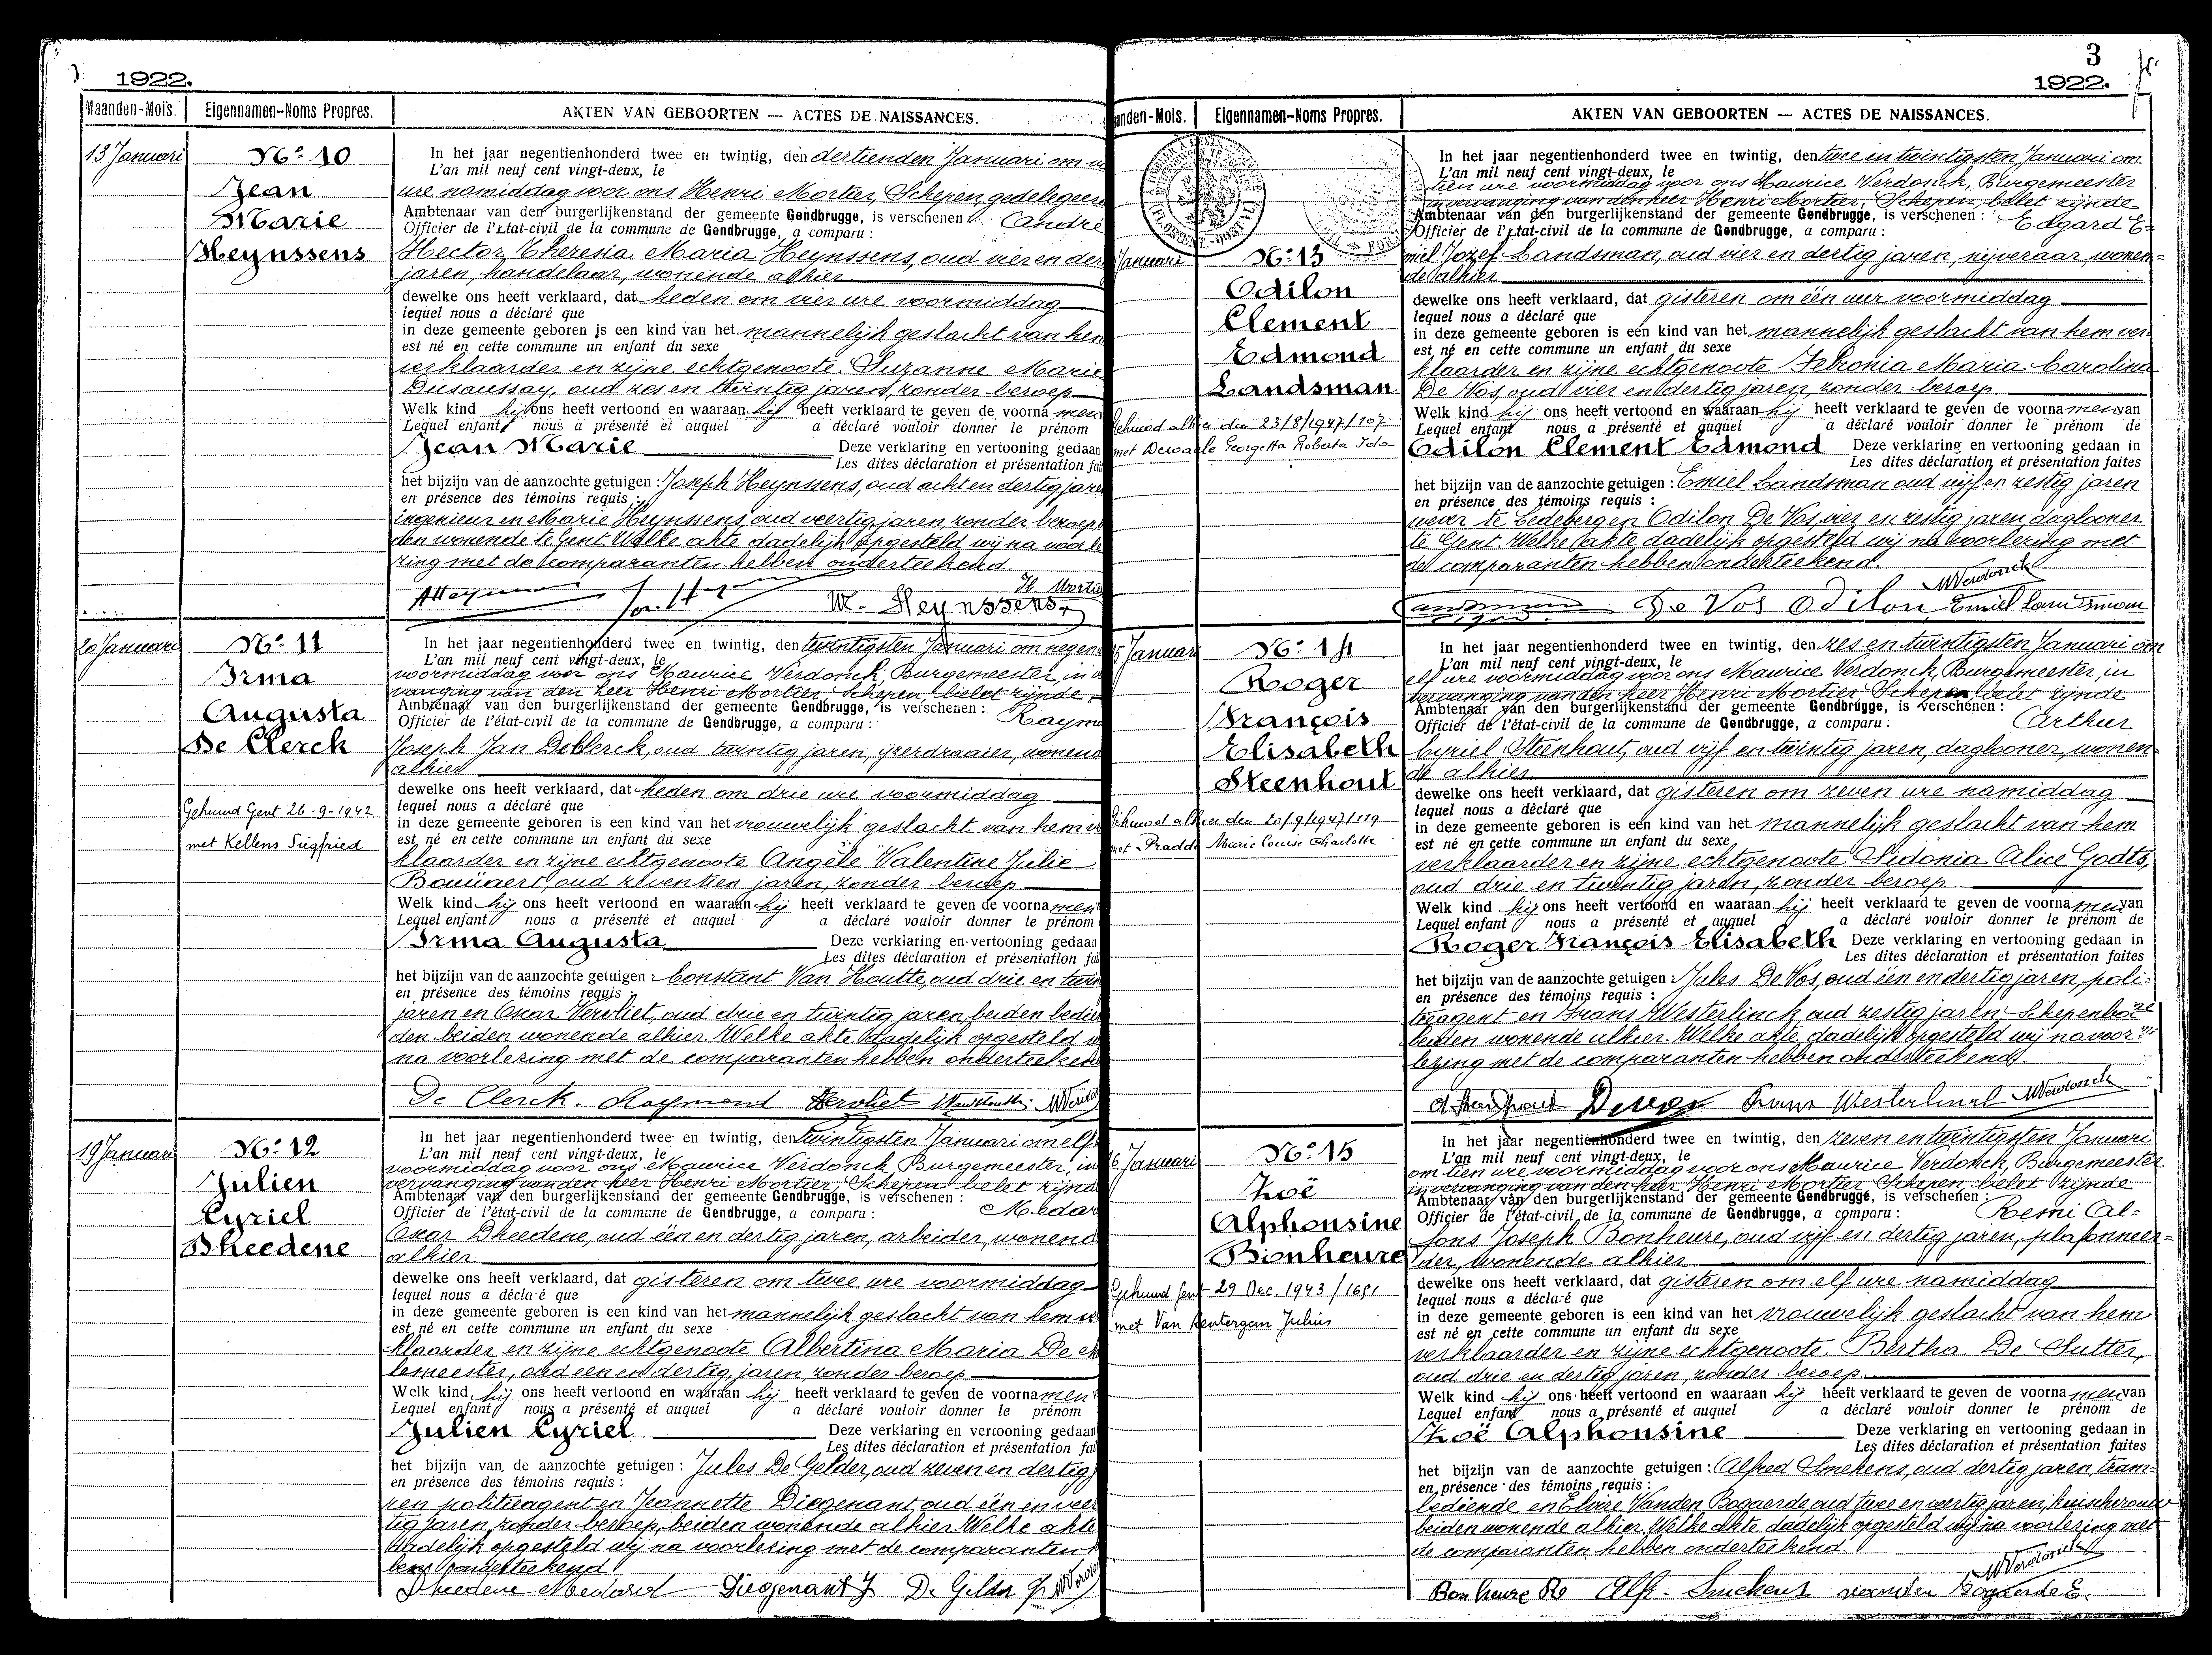 1922.
Maanden-Mois.
Eigennamen-Noms Propres.
AKTEN VAN GEBOORTEN — ACTES DE NAISSANCES.
13 Januari
No 10
Jean
Marie
Heynssens
In het jaar negentienhonderd twee en twintig, den dertienden Januari om
L'an mil neuf cent vingt-deux, le
ure namiddag voor ons Henri Mortier, Schepen, gedelegeer
Ambtenaar van den burgerlijkenstand der gemeente Gendbrugge, is verschenen : André
Officier de l'état-civil de la commune de Gendbrugge, a comparu :
Hector, Theresia Maria Heynssens, oud vier en der
jaren, handelaar, wonende alhier
dewelke ons heeft verklaard, dat heden om vier ure voormiddag
lequel nous a déclaré que
in deze gemeente geboren is een kind van het mannelijk geslacht van hem
est né en cette commune un enfant du sexe
verklaarder en zijne echtgenoote Suzanne Marie
Dusaussay, oud zes en twintig jaren, zonder beroep
Welk kind hij ons heeft vertoond en waaraan hij heeft verklaard te geven de voornamen
Lequel enfant nous a présenté et auquel a déclaré vouloir donner le prénom
Jean Marie Deze verklaring en vertooning gedaan
Les dites déclaration et présentation fai
het bijzijn van de aanzochte getuigen : Joseph Heynssens, oud acht en dertig jare
en présence des témoins requis :
ingenieur en Marie Heynssens, oud veertig jaren, zonder beroep
den wonende te Gent. Welke akte dadelijk opgesteld wij na voorle
zing met de comparanten hebben onderteekend.
H. Mortie
M. Heynssens
20 Januari
No 11
Irma
Augusta
De Clerck
Gehuwd Gent 26-9-1942
met Kellens Siegfried
In het jaar negentienhonderd twee en twintig, den twintigsten Januari om negen
L'an mil neuf cent vingt-deux, le
voormiddag voor ons Maurice Verdonck, Burgemeester, in
vanging van den heer Henri Mortier, Schepen, belet zijnde
Ambtenaar van den burgerlijkenstand der gemeente Gendbrugge, is verschenen : Raymo
Officier de l'état-civil de la commune de Gendbrugge, a comparu :
Joseph Jan De Clerck, oud twintig jaren, ijzerdraaier, wonend
alhier
dewelke ons heeft verklaard, dat heden om drie ure voormiddag
lequel nous a déclaré que
in deze gemeente geboren is een kind van het vrouwelijk geslacht van hem
est né en cette commune un enfant du sexe
klaarder en zijne echtgenoote Angèle Valentine Julie
oud zeventien jaren, zonder beroep
Welk kind hij ons heeft vertoond en waaraan hij heeft verklaard te geven de voornamen
Lequel enfant nous a présenté et auquel a déclaré vouloir donner le prénom
Irma Augusta Deze verklaring en vertooning gedaan
Les dites déclaration et présentation fai
het bijzijn van de aanzochte getuigen : Constant Van Houtte, oud drie en twin
en présence des témoins requis :
jaren en Oscar Vervliet, oud drie en twintig jaren, beiden bedie
den beiden wonende alhier. Welke akte dadelijk opgesteld
na voorlezing met de comparanten hebben onderteeken
De Clerck. Raymond Vervliet
19 Januari
No 12
Julien
Cyriel
Dheedene
In het jaar negentienhonderd twee en twintig, den twintigsten Januari om elf
L'an mil neuf cent vingt-deux, le
voormiddag voor ons Maurice Verdonck Burgemeester, in
vervanging van den heer Henri Mortier, Schepen belet zijnd
Ambtenaar van den burgerlijkenstand der gemeente Gendbrugge, is verschenen : Medar
Officier de l'état-civil de la commune de Gendbrugge, a comparu :
Oscar Dheedene, oud één en dertig jaren, arbeider, wonend
alhier
dewelke ons heeft verklaard, dat gisteren om twee ure voormiddag
lequel nous a déclaré que
in deze gemeente geboren is een kind van het mannelijk geslacht van hem
est né en cette commune un enfant du sexe
klaarder en zijne echtgenoote Albertina Maria De M
lemeester, oud een en dertig, jaren, zonder beroep
Welk kind hij ons heeft vertoond en waaraan hij heeft verklaard te geven de voornamen
Lequel enfant nous a présenté et auquel a déclaré vouloir donner le prénom
Julien Cyriel Deze verklaring en vertooning gedaan
Les dites déclaration et présentation fai
het bijzijn van de aanzochte getuigen : Jules De Gelder, oud zeven en dertig
en présence des témoins requis :
ren politieagent en Jeannette Diegenant, oud één en veer
tig jaren, zonder beroep, beiden wonende alhier. Welke akte
dadelijk opgesteld wij na voorlezing met de comparanten
ben onderteekend
Dheedene Medard Diegenant J De Gelder J
3
1922.
anden-Mois.
Eigennamen-Noms Propres.
AKTEN VAN GEBOORTEN — ACTES DE NAISSANCES.
Januari
No 13
Odilon
Clement
Edmond
Landsman
Gehuwd alhier den 23/8/1947/107
met Dewaele Georgetta Roberta Ida
In het jaar negentienhonderd twee en twintig, den twee en twintigsten Januari om
L'an mil neuf cent vingt-deux, le
tien ure voormiddag voor ons Maurice Verdonck, Burgemeester
in vervanging van den heer Henri Mortier, Schepen, belet zijnde
Ambtenaar van den burgerlijkenstand der gemeente Gendbrugge, is verschenen : Edgard E=
Officier de l'état-civil de la commune de Gendbrugge, a comparu :
miel Jozef Landsman, oud vier en dertig jaren, nijveraar, wonen=
de alhier
dewelke ons heeft verklaard, dat gisteren om één uur voormiddag
lequel nous a déclaré que
in deze gemeente geboren is een kind van het mannelijk geslacht van hem ver-
est né en cette commune un enfant du sexe
klaarder en zijne echtgenoote Petronia Maria Carolina
De Vos, oud vier en dertig jaren, zonder beroep
Welk kind hij ons heeft vertoond en waaraan hij heeft verklaard te geven de voornamen van
Lequel enfant nous a présenté et auquel a déclaré vouloir donner le prénom de
Odilon Clement Edmond Deze verklaring en vertooning gedaan in
Les dites déclaration et présentation faites
het bijzijn van de aanzochte getuigen : Emiel Landsman oud vijf en zestig jaren
en présence des témoins requis :
wever te Ledeberg en Odilon De Vos, vier en zestig jaren daglooner
te Gent. Welke akte dadelijk opgesteld wij na voorlezing met
de comparanten hebben onderteekend.
MVerdonck
Landsman De Vos Odilon Emiel Landsman
Januari
No 14
Roger
François
Elisabeth
Steenhout
Gehuwd alhier den 20/9/1947/119
met Pradde Marie Louise Charlotte
In het jaar negentienhonderd twee en twintig, den zes en twintigsten Januari om
L'an mil neuf cent vingt-deux, le
elf ure voormiddag voor ons Maurice Verdonck, Burgemeester, in
vervanging van den heer Henri Mortier Schepen belet zijnde
Ambtenaar van den burgerlijkenstand der gemeente Gendbrugge, is verschenen : Arthur
Officier de l'état-civil de la commune de Gendbrugge, a comparu :
Cyriel Steenhout, oud vijf en twintig jaren, daglooner, wonen=
de alhier
dewelke ons heeft verklaard, dat gisteren om zeven ure namiddag
lequel nous a déclaré que
in deze gemeente geboren is een kind van het mannelijk geslacht van hem
est né en cette commune un enfant du sexe
verklaarder en zijne echtgenoote Sidonia Alice Godts,
oud drie en twintig jaren, zonder beroep
Welk kind hij ons heeft vertoond en waaraan hij heeft verklaard te geven de voornamen van
Lequel enfant nous a présenté et auquel a déclaré vouloir donner le prénom de
Roger François Elisabeth Deze verklaring en vertooning gedaan in
Les dites déclaration et présentation faites
het bijzijn van de aanzochte getuigen : Jules De Vos, oud één en dertig jaren, poli=
en présence des témoins requis :
tieagent en Frans Westerlinck oud zestig jaren
beiden wonende alhier. Welke akte dadelijk opgesteld wij na voor=
lezing met de comparanten hebben onderteekend
A Steenhout Devos Frans Westerlinck MVerdonck
6 Januari
No 15
Zoë
Alphonsine
Bonheure
Gehuwd Gent 29 Dec. 1943 / 1651
met Van Renterghem Julius
In het jaar negentienhonderd twee en twintig, den zeven en twintigsten Januari
L'an mil neuf cent vingt-deux, le
om tien ure voormiddag voor ons Maurice Verdonck, Burgemeester
in vervanging van den heer Henri Mortier Schepen, belet zijnde
Ambtenaar van den burgerlijkenstand der gemeente Gendbrugge, is verschenen : Remi Al=
Officier de l'état-civil de la commune de Gendbrugge, a comparu :
fons Joseph Bonheure, oud vijf en dertig jaren, plafonneer=
der, wonende alhier
dewelke ons heeft verklaard, dat gisteren om elf ure namiddag
lequel nous a déclaré que
in deze gemeente geboren is een kind van het vrouwelijk geslacht van hem
est né en cette commune un enfant du sexe
verklaarder en zijne echtgenoote Bertha De Sutter,
oud drie en dertig jaren, zonder beroep
Welk kind hij ons heeft vertoond en waaraan hij heeft verklaard te geven de voornamen van
Lequel enfant nous a présenté et auquel a déclaré vouloir donner le prénom de
Zoë Alphonsine Deze verklaring en vertooning gedaan in
Les dites déclaration et présentation faites
het bijzijn van de aanzochte getuigen : Alfred Smekens, oud dertig jaren, tram-
en présence des témoins requis :
bediende en Elvire Vanden Bogaerde oud twee en veertig jaren, huisvrouw
beiden wonende alhier. Welke akte dadelijk opgesteld wij na voorlezing met
de comparanten hebben onderteekend.
MVerdonck
Bonheure R Alf. Smekens vanden Bogaerde E.